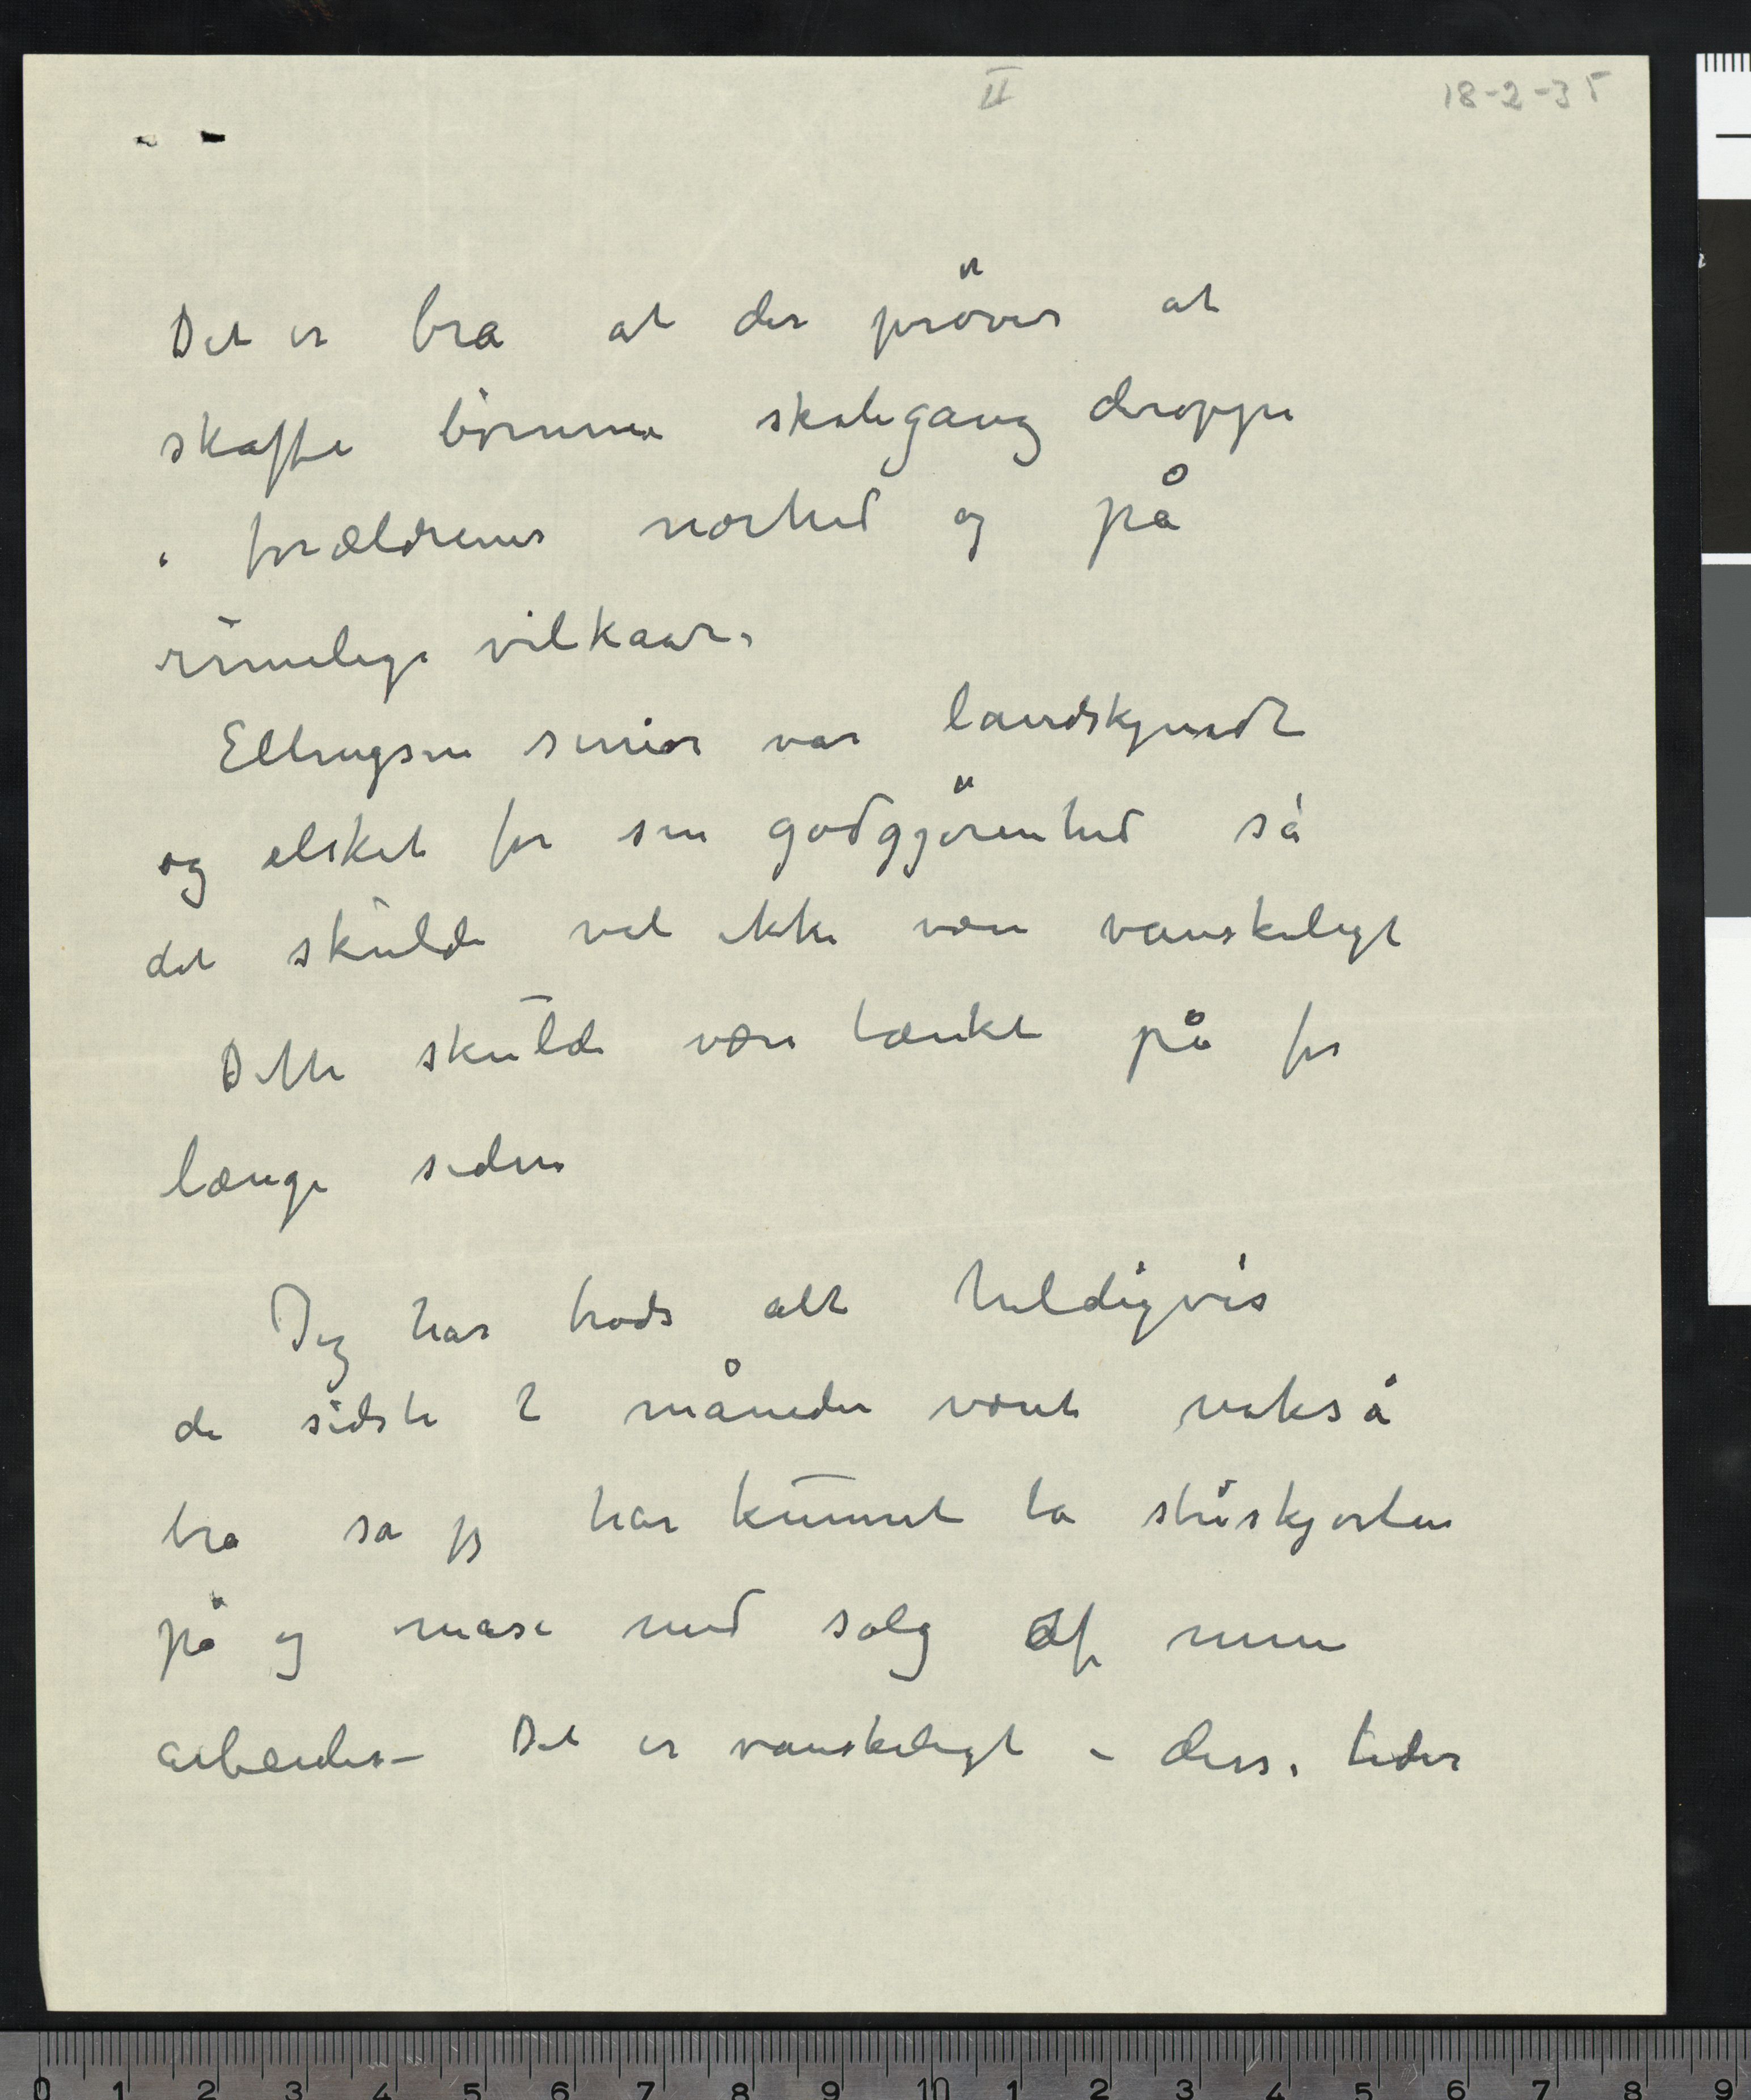 II
18-2-35
Det er bra at der pröves at
skaffe börnene skolegang deroppe
i forældrenes nærhed og på
rimelige vilkaar.
Ellingsen senior var landskjendt
og elsket for sin godgjörenhed så
det skulde vel ikke være vanskeligt
Dette skulde være tænkt på for
længe siden
Jeg har trods alt heldigvis
de sidste 2 måneder været nokså
bra så jeg har kunnet ta striskjorten
på og mase med salg af mine
arbeider – Det er vanskeligt i disse tider